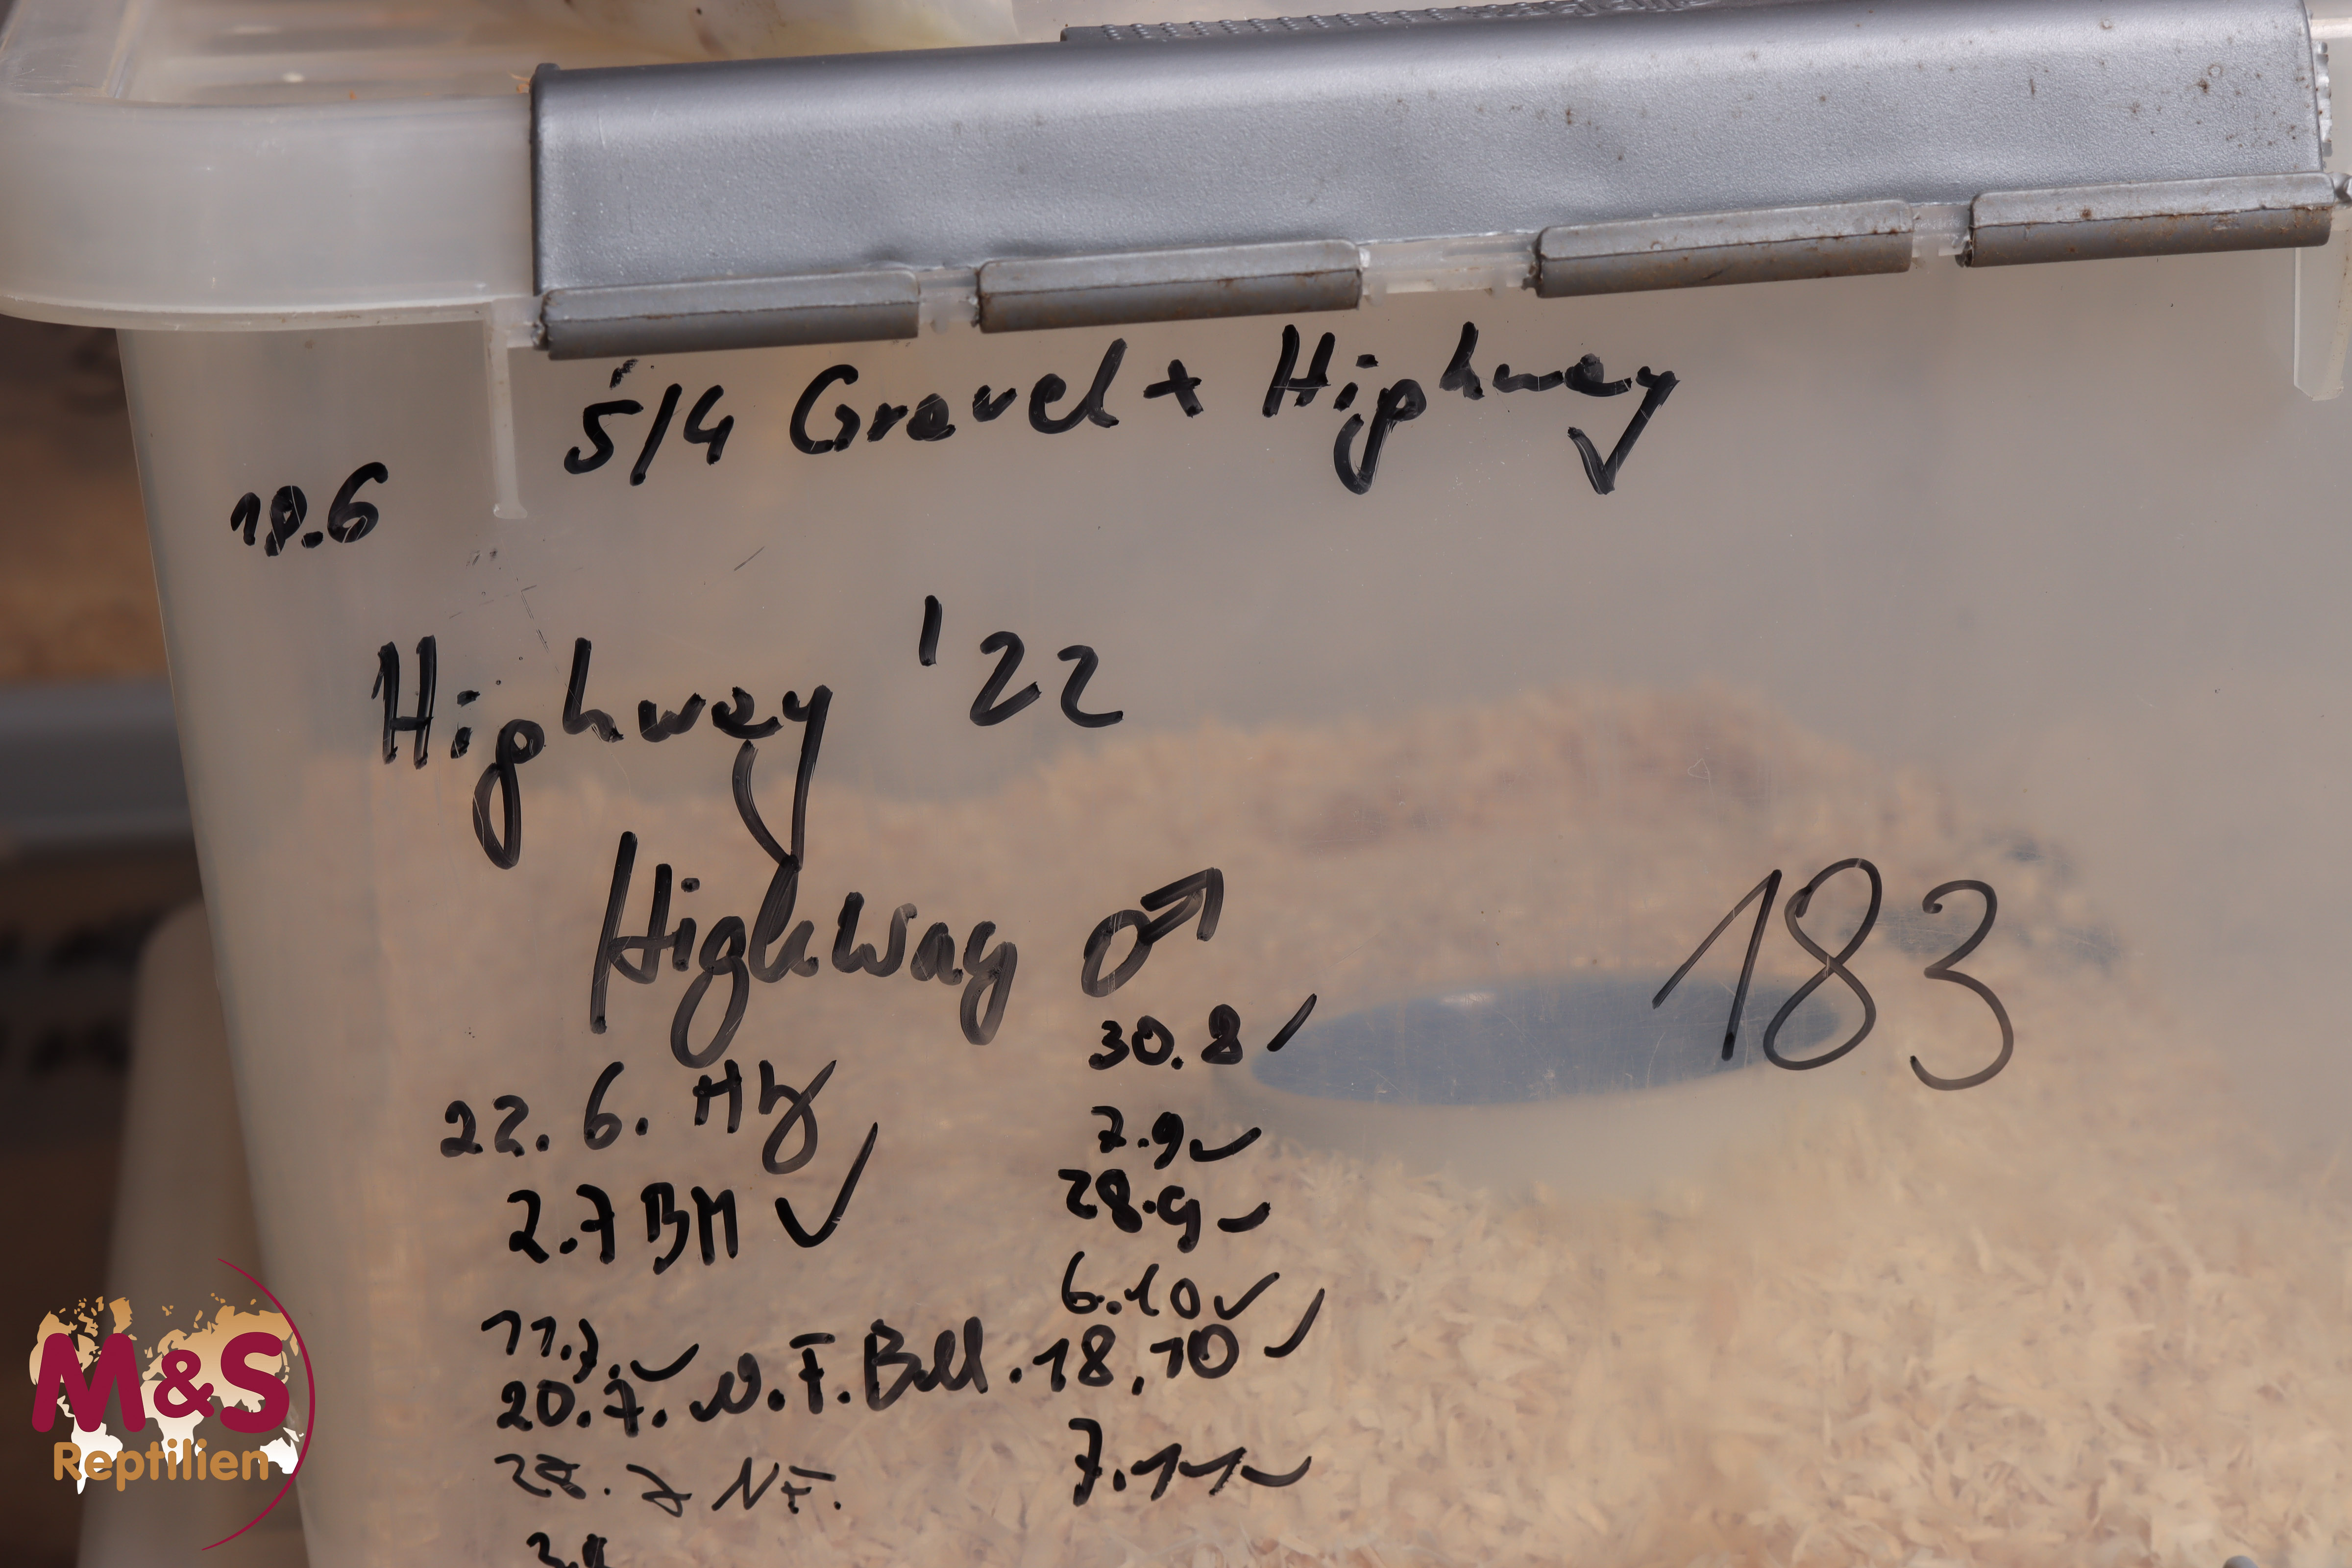 5/4 Gravel + Highway
18.6
Highway '22
Highway ♂
183
22. 6. Hz
2.7 BM ✓
11.7. ✓
20.7. N.F. Boll.
27.7 NF.
3.8
30.8 ✓
7.9 ✓
28.9 ✓
6.10 ✓
18.10 ✓
7.11 ✓
M&S
Reptilien